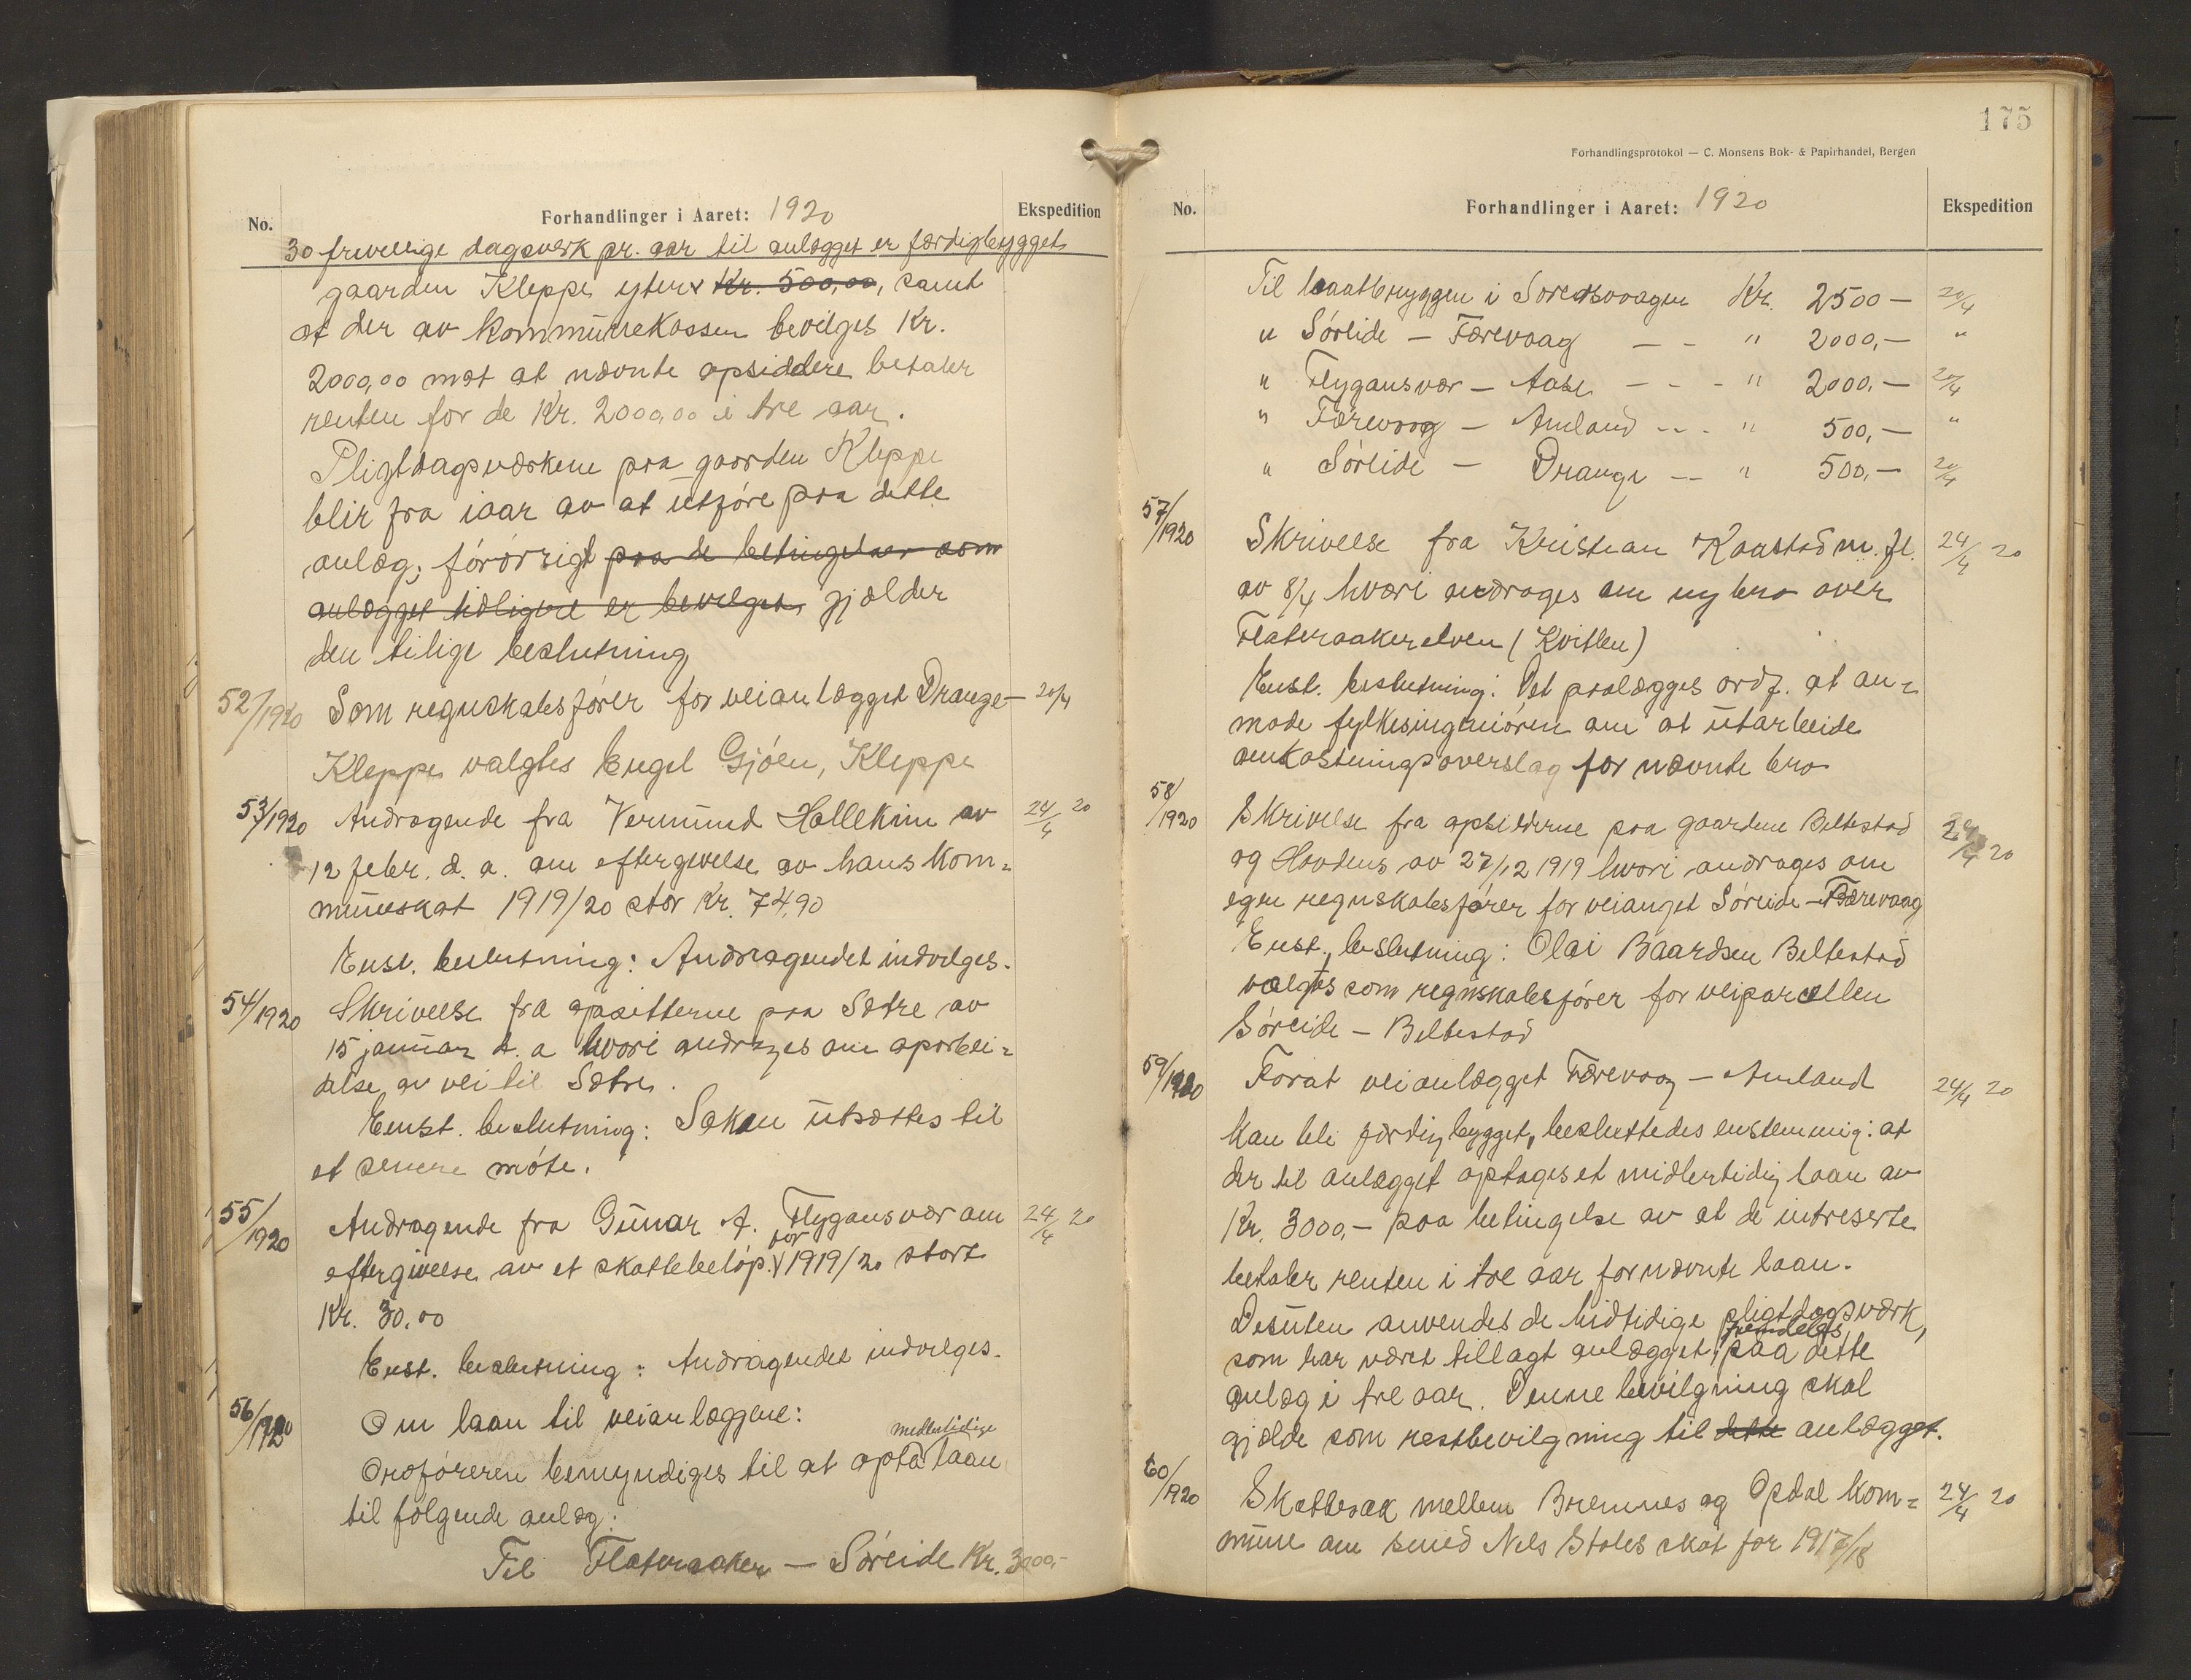 No.
Forhandlinger i Aaret: 1920
Ekspedition
30 frivillige dagsverk pr. aar til anlægget er færdigbygget
gaarden Kleppe yter Kr. 500,00, samt
at der av kommunekassen bevilges Kr.
2000,00 mot at nævnte opsiddere betaler
renten for de Kr. 2000,00 i tre aar.
Pligtdagsværkene paa gaarden Kleppe
blir fra iaar av at utføre paa dette
anlæg; forørrigt paa de betingelser som
anlægget tidligere er bevilget, gjælder
den tilige beslutning
52/1920 Som regnskabsfører for veianlægget Drange- 20/4
Kleppe valgtes Engel Gjøen, Kleppe
53/1920 Andragende fra Vermund Hallekim av 24/4 20
12 febr. d. a. om eftergivelse av hans kom=
muneskat 1919/20 stor Kr. 74,90
Enst. beslutning: Andragendet indvilges.
54/1920 Skrivelse fra opsitterne paa Sætre av
15 januar d. a hvori andrages om oparbei=
delse av vei til Sætre.
Enst. beslutning: Saken utsættes til
et senere møte.
55/1920 Andragende fra Gunar A. Flygansvær om 24/4 20
eftergivelse av et skattebeløp for 1919/20 stort
Kr. 30.00
Enst. beslutning: Andragendet indvilges.
56/1920 Om laan til veianlæggene:
Ordføreren bemyndiges til at opta midlertidige laan
til følgende anlæg:
Til Flateraaker — Søreide Kr. 3000,-
175
Forhandlingsprotokol — C. Monsens Bok- & Papirhandel, Bergen
No.
Forhandlinger i Aaret: 1920
Ekspedition
Til baatbryggen i Sorensvaagen Kr. 2500 — 20/4
" Søreide — Færevaag — - " 2000,— "
" Flygansvær — Aase — - - " 2000,— 20/4
" Færevaag — Amland -- - " 500,— "
" Søreide — Drange -- " 500,— 20/4
57/1920 Skrivelse fra Kristian Kaastad m. fl. 24/4 20
av 8/4 hvori andrages om ny bro over
Flateraakerelven (Kvitlen)
Enst. beslutning: Det paalægges ordf. at an=
mode fylkesingeniøren om at utarbeide
omkostningsoverslag for nævnte bro
58/1920 Skrivelse fra opsidderne paa gaardene Beltestad 24/4 20
og Hovdens av 27/12 1919 hvori andrages om
egen regnskabsfører for veianget Søreide — Færevaag
Enst. beslutning: Olai Baardsen Beltestad
valgtes som regnskabsfører for veiparcellen
Søreide — Beltestad
59/1920 Forat veianlægget Færevaag — Amland 24/4 20
kan bli færdigbygget, besluttedes enstemmig: at
der til anlægget optages et midlertidig laan av
Kr. 3000,- paa betingelse av at de intreserte
betaler renten i tre aar for nævnte laan.
Desuten anvendes de hidtidige pligtdagsværk,
som har været tillagt anlægget, fremdeles paa dette
anlæg i tre aar. Denne bevilgning skal
gjælde som restbevilgning til dette anlægget.
60/1920 Skattesak mellem Bremnes og Opdal kom= 24/4 20
mune om smed Nels Stoles skat for 1917/18